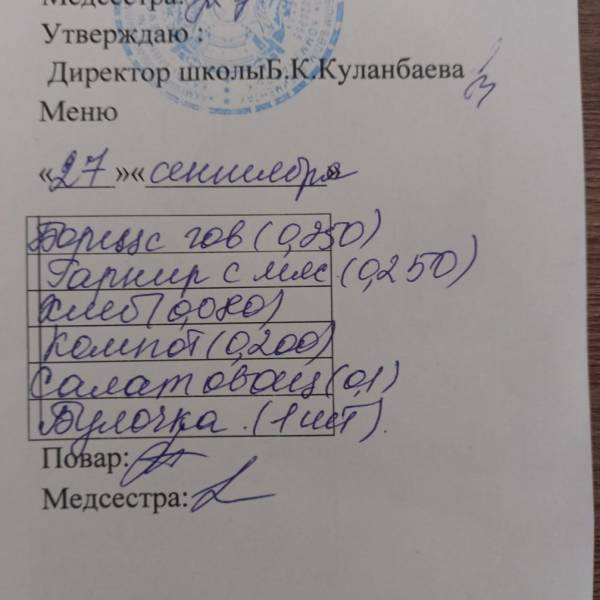 Медсестра:
Утверждаю :
Директор школыБ.К.Куланбаева
Меню
«27»«сентября»
Борщ с гов (0,250)
Гарнир с мяс (0,250)
Хлеб (0,080)
Компот (0,200)
Салат овощ (0,1)
Булочка (1 шт).
Повар:
Медсестра: